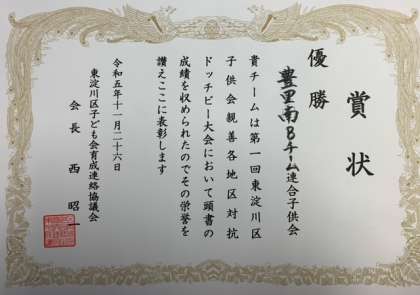 賞状
優勝
豊里南Bチーム連合子供会
貴チームは第一回東淀川区
子供会親善各地区対抗
ドッチビー大会において頭書の
成績を収められたのでその栄誉を
讃えここに表彰します
令和五年十一月二十六日
東淀川区子ども会育成連絡協議会
会長 西昭一